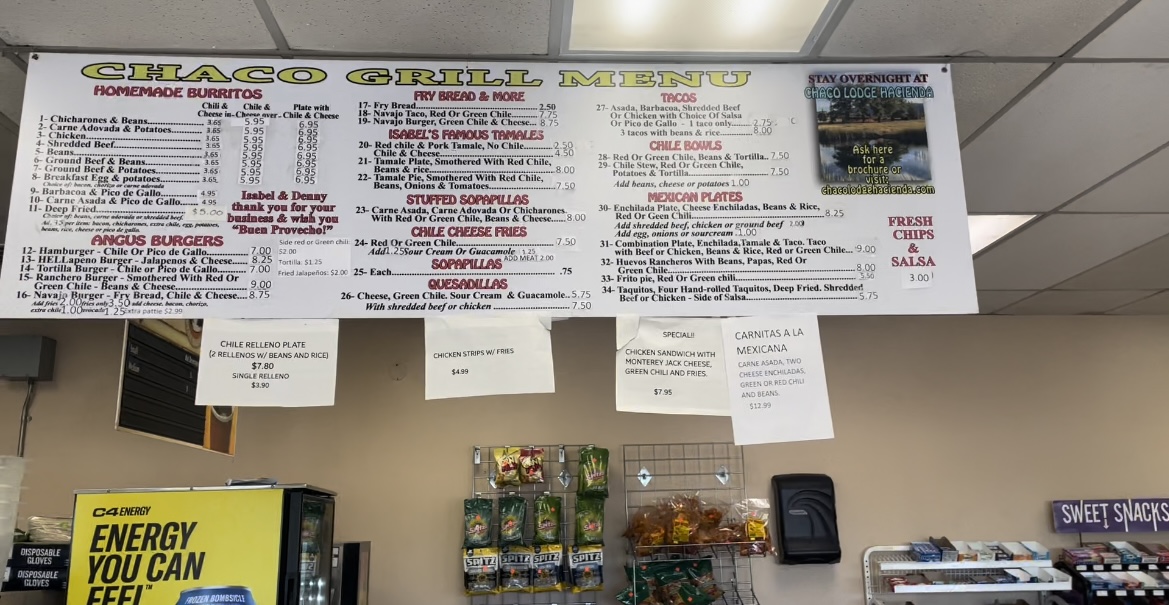 CHACO GRILL MENU
HOMEMADE BURRITOS
Chili & Cheese in- Chile & Cheese over- Plate with Chile & Cheese
1- Chicharones & Beans 3.65 5.95 6.95
2- Carne Adovada & Potatoes 3.65 5.95 6.95
3- Chicken 3.65 5.95 6.95
4- Shredded Beef 3.65 5.95 6.95
5- Beans 3.65 5.95 6.95
6- Ground Beef & Beans 3.65 5.95 6.95
7- Ground Beef & Potatoes 3.65 5.95 6.95
8- Breakfast Egg & potatoes 3.65 5.95 6.95
Choice of: bacon, chorizo or carne adovada
9- Barbacoa & Pico de Gallo 4.95
10- Carne Asada & Pico de Gallo 4.95
11- Deep Fried $5.00
Choice of: beans, carne adovada or shredded beef
beans, rice, cheese or pico de gallo.
Isabel & Denny
thank you for your
business & wish you
"Buen Provecho!"
ANGUS BURGERS
12- Hamburger - Chile Or Pico de Gallo 7.00
13- HELLapeno Burger - Jalapenos & Cheese 8.25
14- Tortilla Burger - Chile or Pico de Gallo 7.00
15- Ranchero Burger - Smothered With Red Or
Green Chile - Beans & Cheese 9.00
16- Navajo Burger - Fry Bread, Chile & Cheese 8.75
Add fries 2.00 fries only 3.50 add cheese, bacon, chorizo,
extra chile 1.00 avocado 1.25 Extra pattie $2.99
Side red or Green chili:
$2.00
Tortilla: $1.25
Fried Jalapeños: $2.00
FRY BREAD & MORE
17- Fry Bread 2.50
18- Navajo Taco, Red Or Green Chile 7.75
19- Navajo Burger, Green Chile & Cheese 8.75
ISABEL'S FAMOUS TAMALES
20- Red chile & Pork Tamale, No Chile 2.50
Chile & Cheese 4.50
21- Tamale Plate, Smothered With Red Chile,
Beans & rice 8.00
22- Tamale Pie, Smothered With Red Chile,
Beans, Onions & Tomatoes 7.50
STUFFED SOPAPILLAS
23- Carne Asada, Carne Adovada Or Chicharones.
With Red Or Green Chile, Beans & Cheese 8.00
CHILE CHEESE FRIES
24- Red Or Green Chile 7.50
Add 1.25 Sour Cream or Guacamole 1.25 ADD MEAT 2.00
SOPAPILLAS
25- Each .75
QUESADILLAS
26- Cheese, Green Chile. Sour Cream & Guacamole 5.75
With shredded beef or chicken 7.50
TACOS
27- Asada, Barbacoa, Shredded Beef
Or Chicken with Choice Of Salsa
Or Pico de Gallo - 1 taco only 2.75
3 tacos with beans & rice 8.00
CHILE BOWLS
28- Red Or Green Chile, Beans & Tortilla 7.50
29- Chile Stew, Red Or Green Chile,
Potatoes & Tortilla 7.50
Add beans, cheese or potatoes 1.00
MEXICAN PLATES
30- Enchilada Plate, Cheese Enchiladas, Beans & Rice,
Red Or Geen Chili 8.25
Add shredded beef, chicken or ground beef 2.00
Add egg, onions or sourcream 1.00
31- Combination Plate, Enchilada,Tamale & Taco. Taco
with Beef or Chicken, Beans & Rice, Red or Green Chile 9.00
32- Huevos Rancheros With Beans, Papas, Red Or
Green Chile 8.00
33- Frito pie, Red Or Green chili
34- Taquitos, Four Hand-rolled Taquitos, Deep Fried. Shredded
Beef or Chicken - Side of Salsa 5.75
STAY OVERNIGHT AT
CHACO LODGE HACIENDA
Ask here
for a
brochure or
visit:
chacolodgehacienda.com
FRESH
CHIPS
&
SALSA
3.00
CHILE RELLENO PLATE
(2 RELLENOS W/ BEANS AND RICE)
$7.80
SINGLE RELLENO
$3.90
CHICKEN STRIPS W/ FRIES
$4.99
SPECIAL!!
CHICKEN SANDWICH WITH
MONTEREY JACK CHEESE,
GREEN CHILI AND FRIES.
$7.95
CARNITAS A LA
MEXICANA
CARNE ASADA, TWO
CHEESE ENCHILADAS,
GREEN OR RED CHILI
AND BEANS.
$12.99
C4 ENERGY
ENERGY
YOU CAN
FEEL™
FROZEN BOMBSICLE
DISPOSABLE
GLOVES
DISPOSABLE
GLOVES
SPITZ SPITZ SPITZ SPITZ
SWEET SNACKS